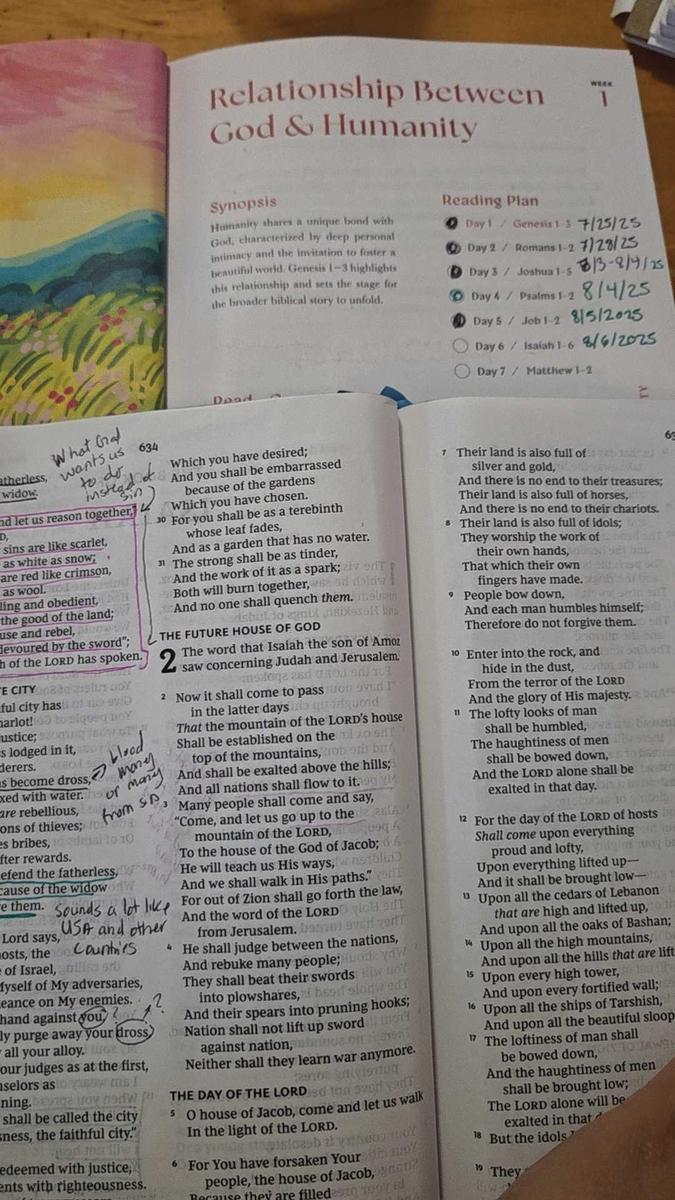 Relationship Between
God & Humanity
WEEK
1
Synopsis
Humanity shares a unique bond with
God, characterized by deep personal
intimacy and the invitation to foster a
beautiful world. Genesis 1–3 highlights
this relationship and sets the stage for
the broader biblical story to unfold.
Reading Plan
Day 1 / Genesis 1-3 7/25/25
Day 2 / Romans 1-2 7/28/25
Day 3 / Joshua 1-5 8/3-8/4/25
Day 4 / Psalms 1-2 8/4/25
Day 5 / Job 1-2 8/5/2025
Day 6 / Isaiah 1-6 8/6/2025
Day 7 / Matthew 1-2
634
What God
wants us
to do
instead of
sin
atherless,
widow.
nd let us reason together,"
sins are like scarlet,
as white as snow;
are red like crimson,
as wool.
ling and obedient,
the good of the land;
use and rebel,
devoured by the sword";
h of the LORD has spoken.
TE CITY
ful city has
harlot!
ustice;
s lodged in it,
derers.
s become dross,
xed with water.
are rebellious,
ons of thieves;
es bribes,
fter rewards.
efend the fatherless,
cause of the widow
e them.
blood
money
or money
from sin
Sounds a lot like
USA and other
Countries
Lord says,
hosts, the
of Israel,
Myself of My adversaries,
eance on My enemies.
hand against you, ?
ly purge away your dross, ?
all your alloy.
our judges as at the first,
nselors as
ning.
shall be called the city
sness, the faithful city."
edeemed with justice,
ents with righteousness.
Which you have desired;
And you shall be embarrassed
because of the gardens
Which you have chosen.
30 For you shall be as a terebinth
whose leaf fades,
And as a garden that has no water.
31 The strong shall be as tinder,
And the work of it as a spark;
Both will burn together,
And no one shall quench them.
THE FUTURE HOUSE OF GOD
2 The word that Isaiah the son of Amoz
saw concerning Judah and Jerusalem.
2 Now it shall come to pass
in the latter days
That the mountain of the LORD's house
Shall be established on the
top of the mountains,
And shall be exalted above the hills;
And all nations shall flow to it.
3 Many people shall come and say,
"Come, and let us go up to the
mountain of the LORD,
To the house of the God of Jacob;
He will teach us His ways,
And we shall walk in His paths."
For out of Zion shall go forth the law,
And the word of the LORD
from Jerusalem.
4 He shall judge between the nations,
And rebuke many people;
They shall beat their swords
into plowshares,
And their spears into pruning hooks;
Nation shall not lift up sword
against nation,
Neither shall they learn war anymore.
THE DAY OF THE LORD
5 O house of Jacob, come and let us walk
In the light of the LORD.
6 For You have forsaken Your
people, the house of Jacob,
Because they are filled
7 Their land is also full of
silver and gold,
And there is no end to their treasures;
Their land is also full of horses,
And there is no end to their chariots.
8 Their land is also full of idols;
They worship the work of
their own hands,
That which their own
fingers have made.
9 People bow down,
And each man humbles himself;
Therefore do not forgive them.
10 Enter into the rock, and
hide in the dust,
From the terror of the LORD
And the glory of His majesty.
11 The lofty looks of man
shall be humbled,
The haughtiness of men
shall be bowed down,
And the LORD alone shall be
exalted in that day.
12 For the day of the LORD of hosts
Shall come upon everything
proud and lofty,
Upon everything lifted up—
And it shall be brought low—
13 Upon all the cedars of Lebanon
that are high and lifted up,
And upon all the oaks of Bashan;
14 Upon all the high mountains,
And upon all the hills that are lift
15 Upon every high tower,
And upon every fortified wall;
16 Upon all the ships of Tarshish,
And upon all the beautiful sloop
17 The loftiness of man shall
be bowed down,
And the haughtiness of men
shall be brought low;
The LORD alone will be
exalted in that
18 But the idols
19 They